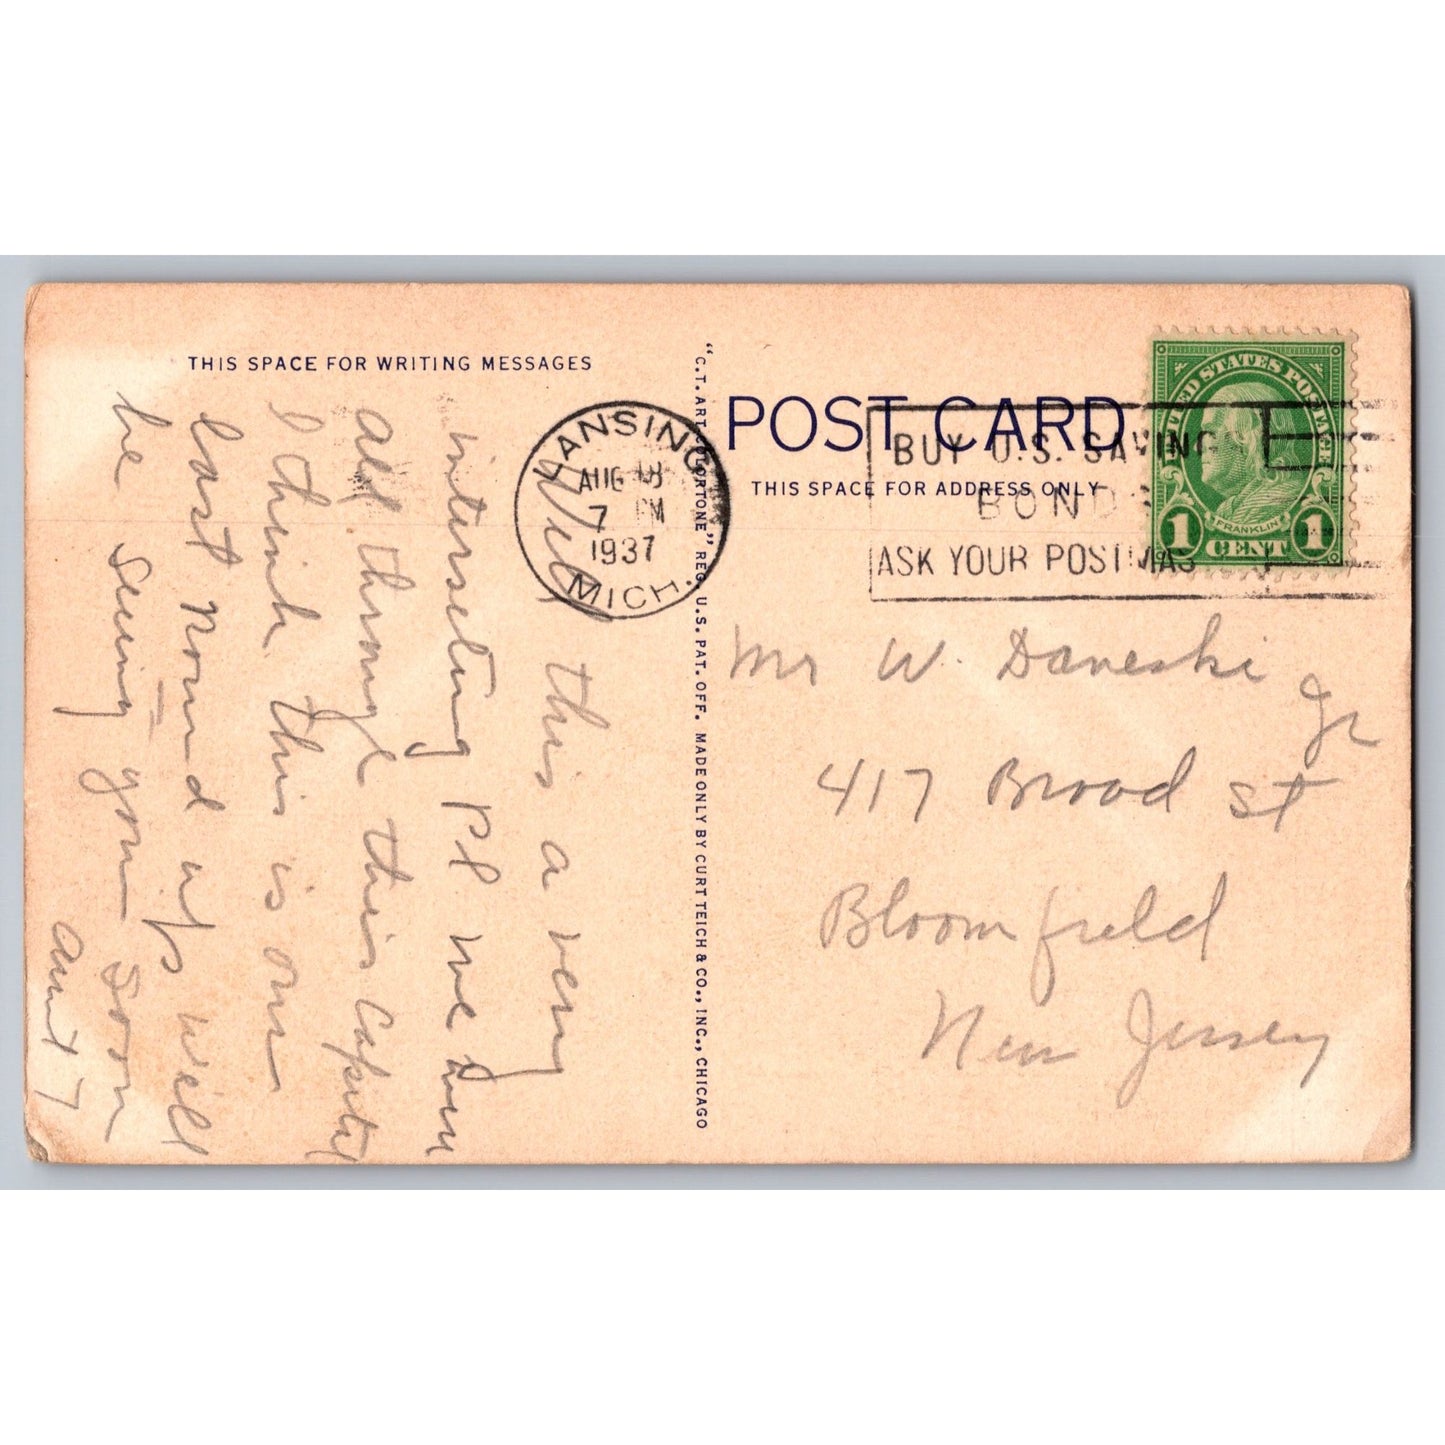 THIS SPACE FOR WRITING MESSAGES
Well this a very
interseting Pl we been
all through this Capital
I think this is our
last round up will
be seeing you soon
aunt 7
"C.T. ART-COLORTONE" REG. U.S. PAT. OFF. MADE ONLY BY CURT TEICH & CO., INC., CHICAGO
LANSING
AUG
7 PM
1937
MICH.
POST CARD
THIS SPACE FOR ADDRESS ONLY
BUY U.S. SAVINGS
BONDS
ASK YOUR POSTMAS
UNITED STATES POSTAGE
FRANKLIN
1 CENT 1
Mr W. Daneski
Jr
417 Broad St
Bloomfield
New Jersey